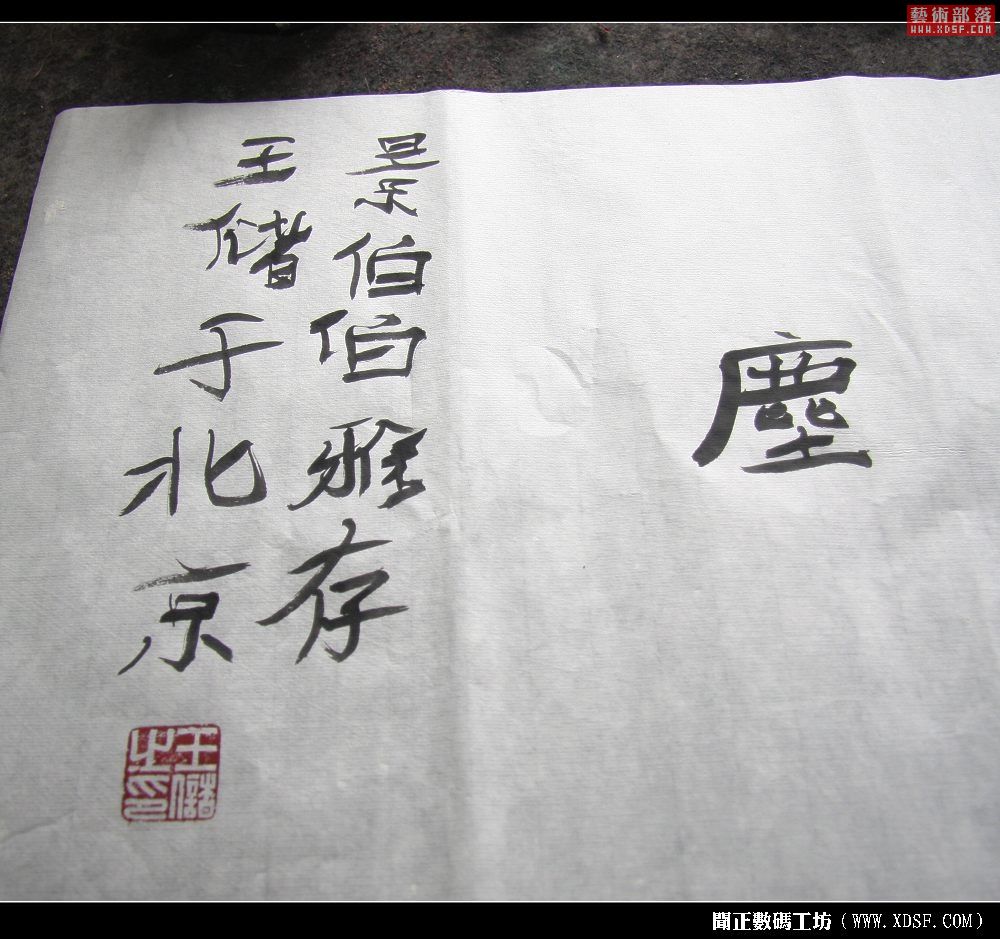 藝術部落
WWW.XDSF.COM
塵
景伯伯雅存
王儲于北京
王儲之印
聞正數碼工坊（WWW.XDSF.COM）